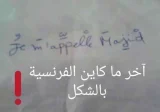 Je m'appelle Majid
آخر ما كاين الفرنسية
بالشكل